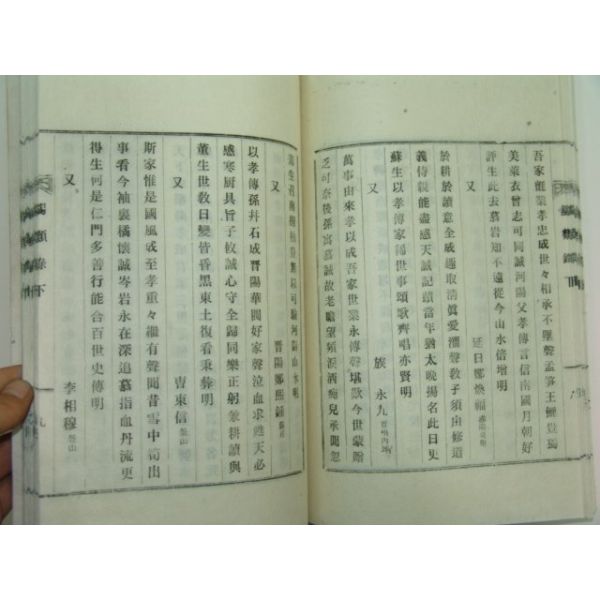 吾家寵業孝忠成世々相承不墜聲孟筍王鯉豈獨
美萊衣曾志可同誠河陽父孝傳信南國月朝好
評生此去慕岩知不遠從今山水倍增明
延日鄭煥福
於耕於讀意全成趣取清眞愛濯聲教子須由修道
義侍親能盡感天誠記蹟當年猶太晩揚名此日更
蘇生以孝傳家稀世事頌歌齊唱亦賢明
又
族 永九
萬事由來孝以成吾家世業永傳聲堪歎今世蒙贈
乏可奈後孫寓慕誠故老瞻望須淚酒痴兒承聞忽
晋陽鄭
以孝傳孫丹石成晋陽華閥好家聲泣血求甦天必
感寒厨具旨子攸誠心守全歸同樂正躬兼耕讀與
董生世教日變皆昏黑東土復看秉彝明
又
曺東信
斯家惟是國風成至孝重々繼有聲聞昔雪中筍出
事看今袖裏橘懷誠岑岩永在深追慕指血丹流更
得生何是仁門多善行能合百世史傳明
又
李相穆